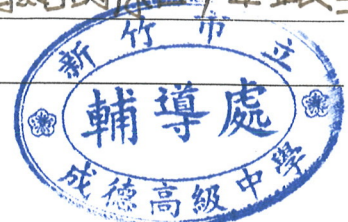 新竹市立
輔導處
成德高級中學